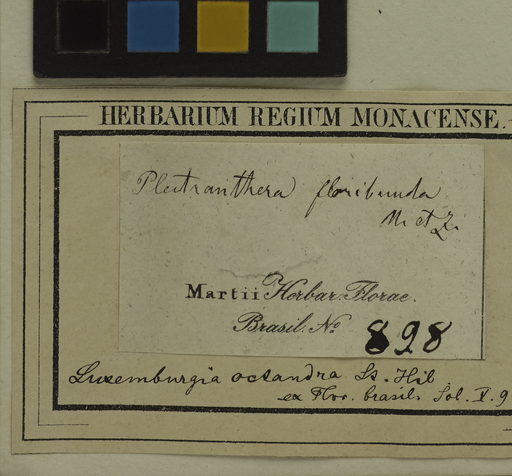 HERBARIUM REGIUM MONACENSE.
Plectranthera floribunda
M. et Z.
Martii Herbar. Florae.
Brasil. No 898
Luxemburgia octandra St. Hil.
ex Flor. brasil. fol. V. 9